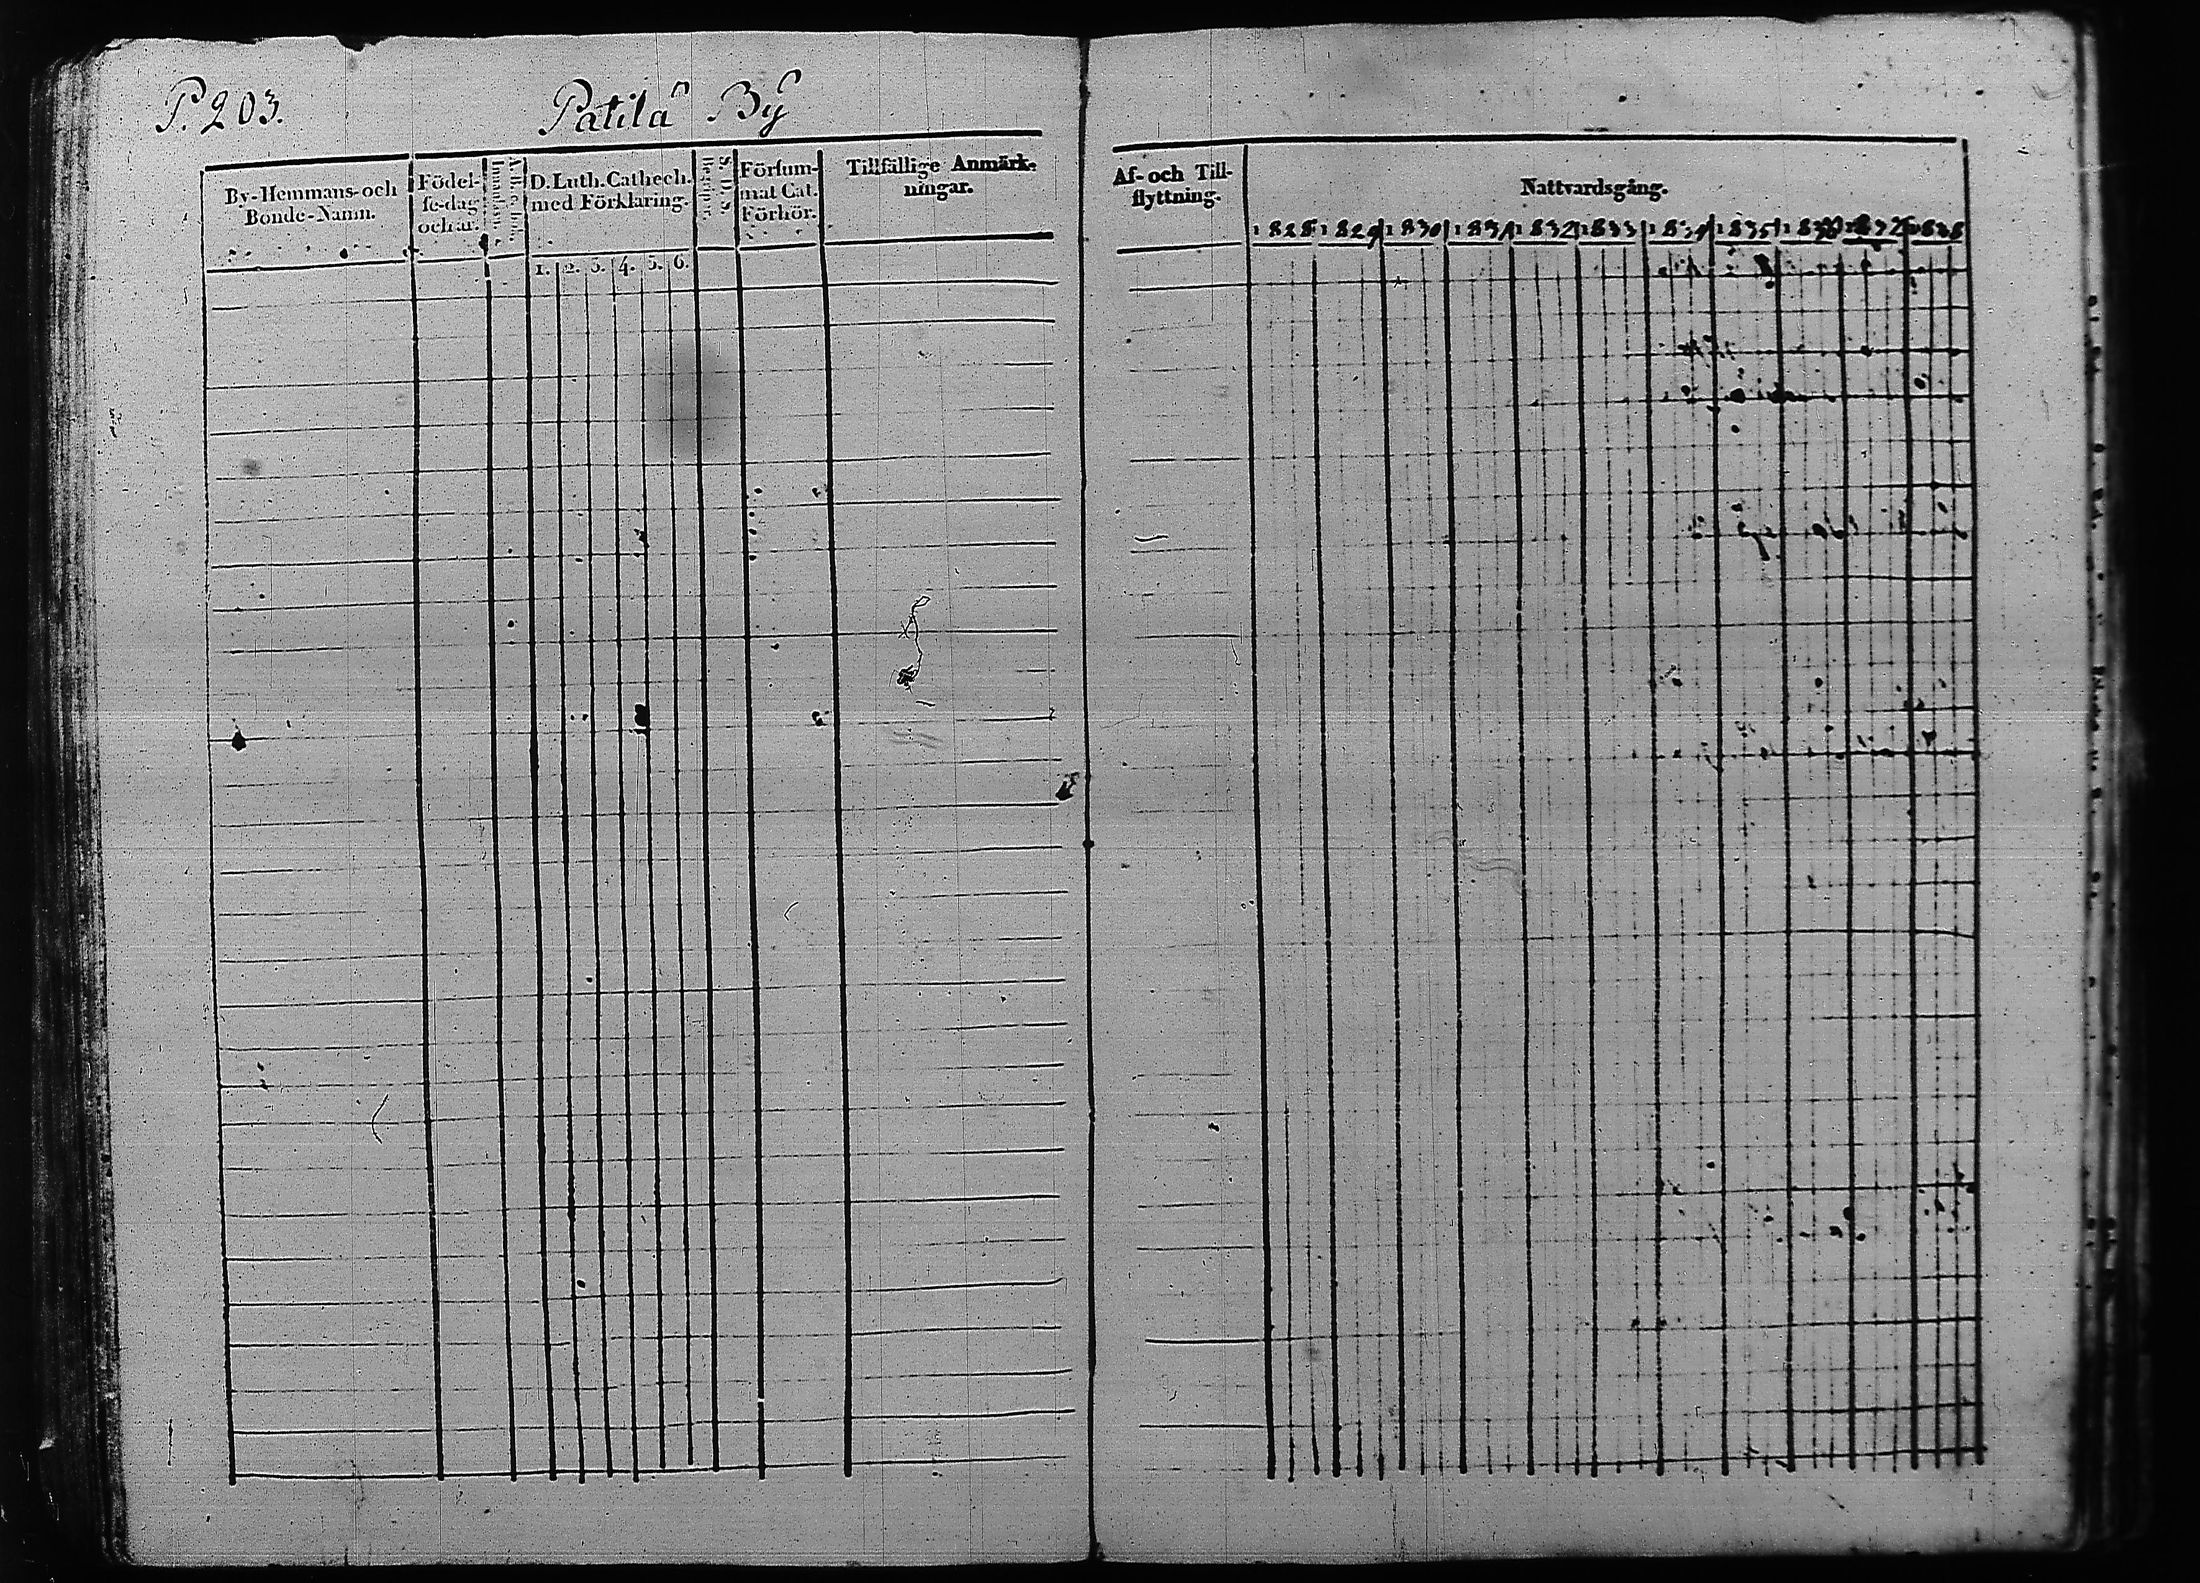 P. 203. Patila By
By-Hemmans-och
Bonde-Namn.
Födel-
se-dag
och år.
D. Luth. Cathech.
med Förklaring.
1. 2. 3. 4. 5. 6.
S. D. s.
Begrepp.
Försum-
mat Cat.
Förhör.
Tillfällige Anmärk-
ningar.
Af- och Till-
flyttning.
Nattvardsgång.
1828 1829 1830 1831 1832 1833 1834 1835 1836 1837 1838